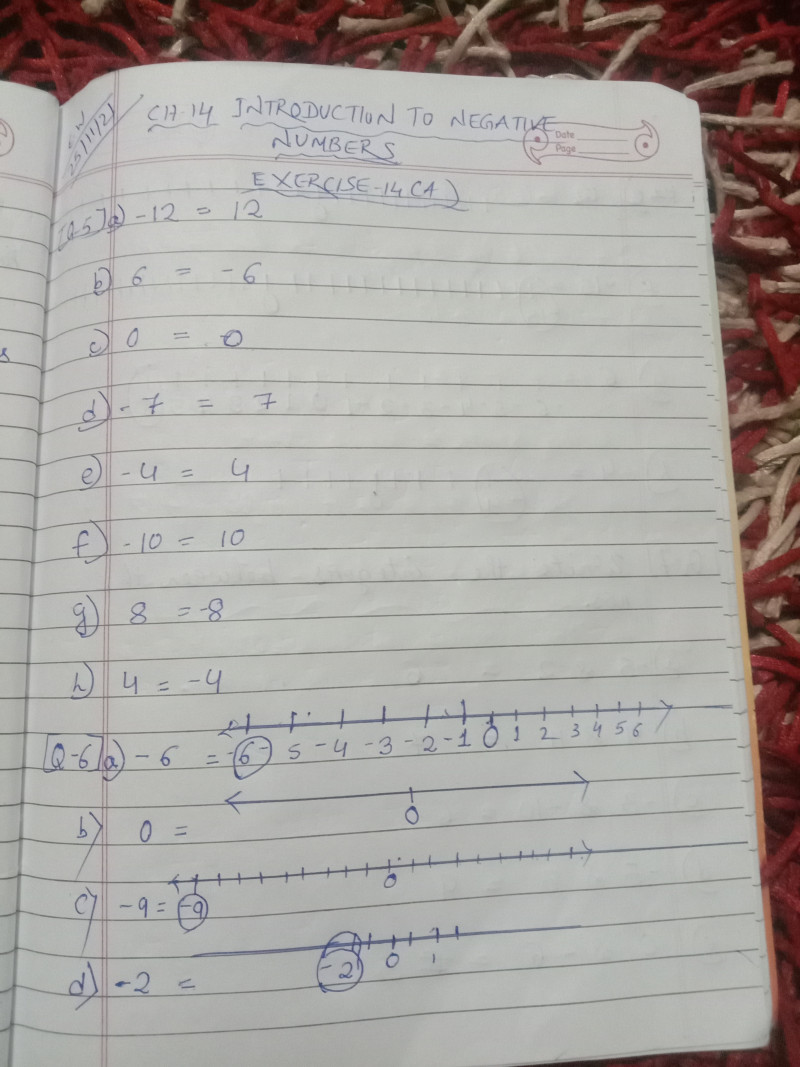 CW
25/11/21
CH-14 INTRODUCTION TO NEGATIVE
NUMBERS
Date
Page
EXERCISE-14(A)
[Q-5] a) -12 = 12
b) 6 = -6
c) 0 = 0
d) -7 = 7
e) -4 = 4
f) -10 = 10
g) 8 = -8
h) 4 = -4
[Q-6] a) -6 = -6 -5 -4 -3 -2 -1 0 1 2 3 4 5 6
b) 0 = 0
c) -9 = -9 0
d) -2 = -2 0 1